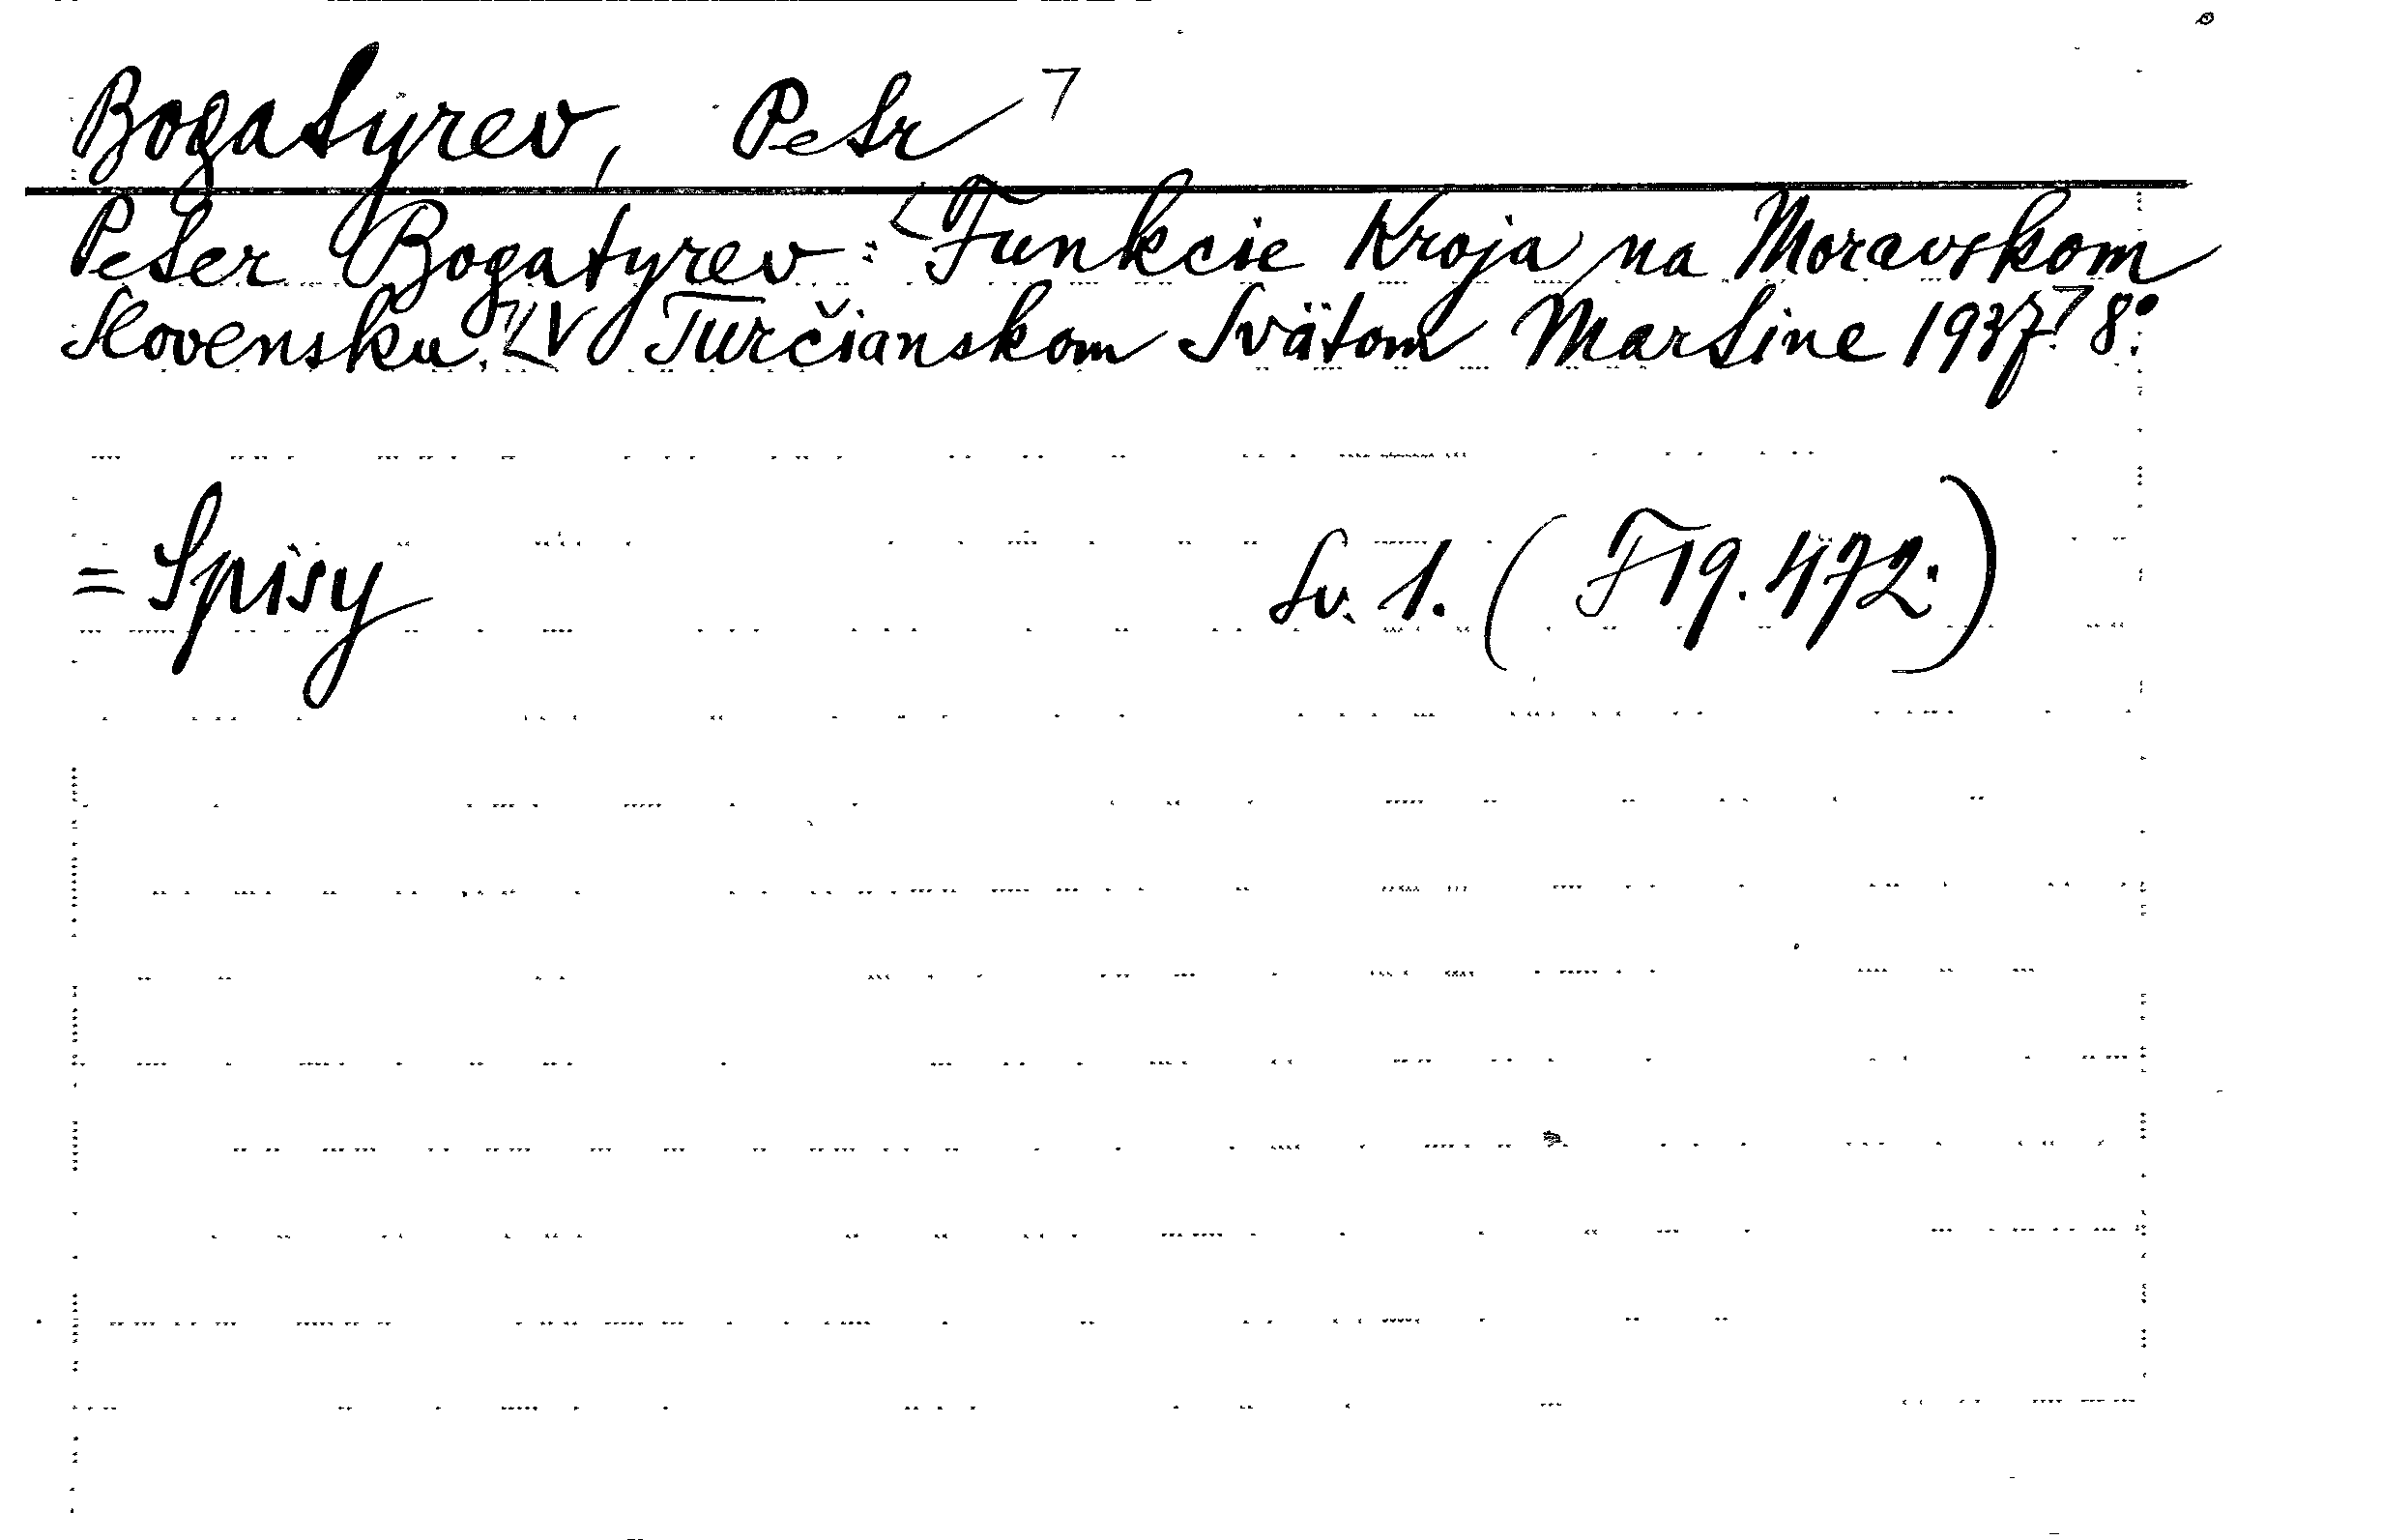 Bogatyrev, Petr ⁊
Peter Bogatyrev: <Funkcie Kroja na Moravskom
Slovensku.⁊ <V Turčianskom Svätom Martine 1937.⁊ 8°.
= Spisy Sv. 1. (F 19.472.)